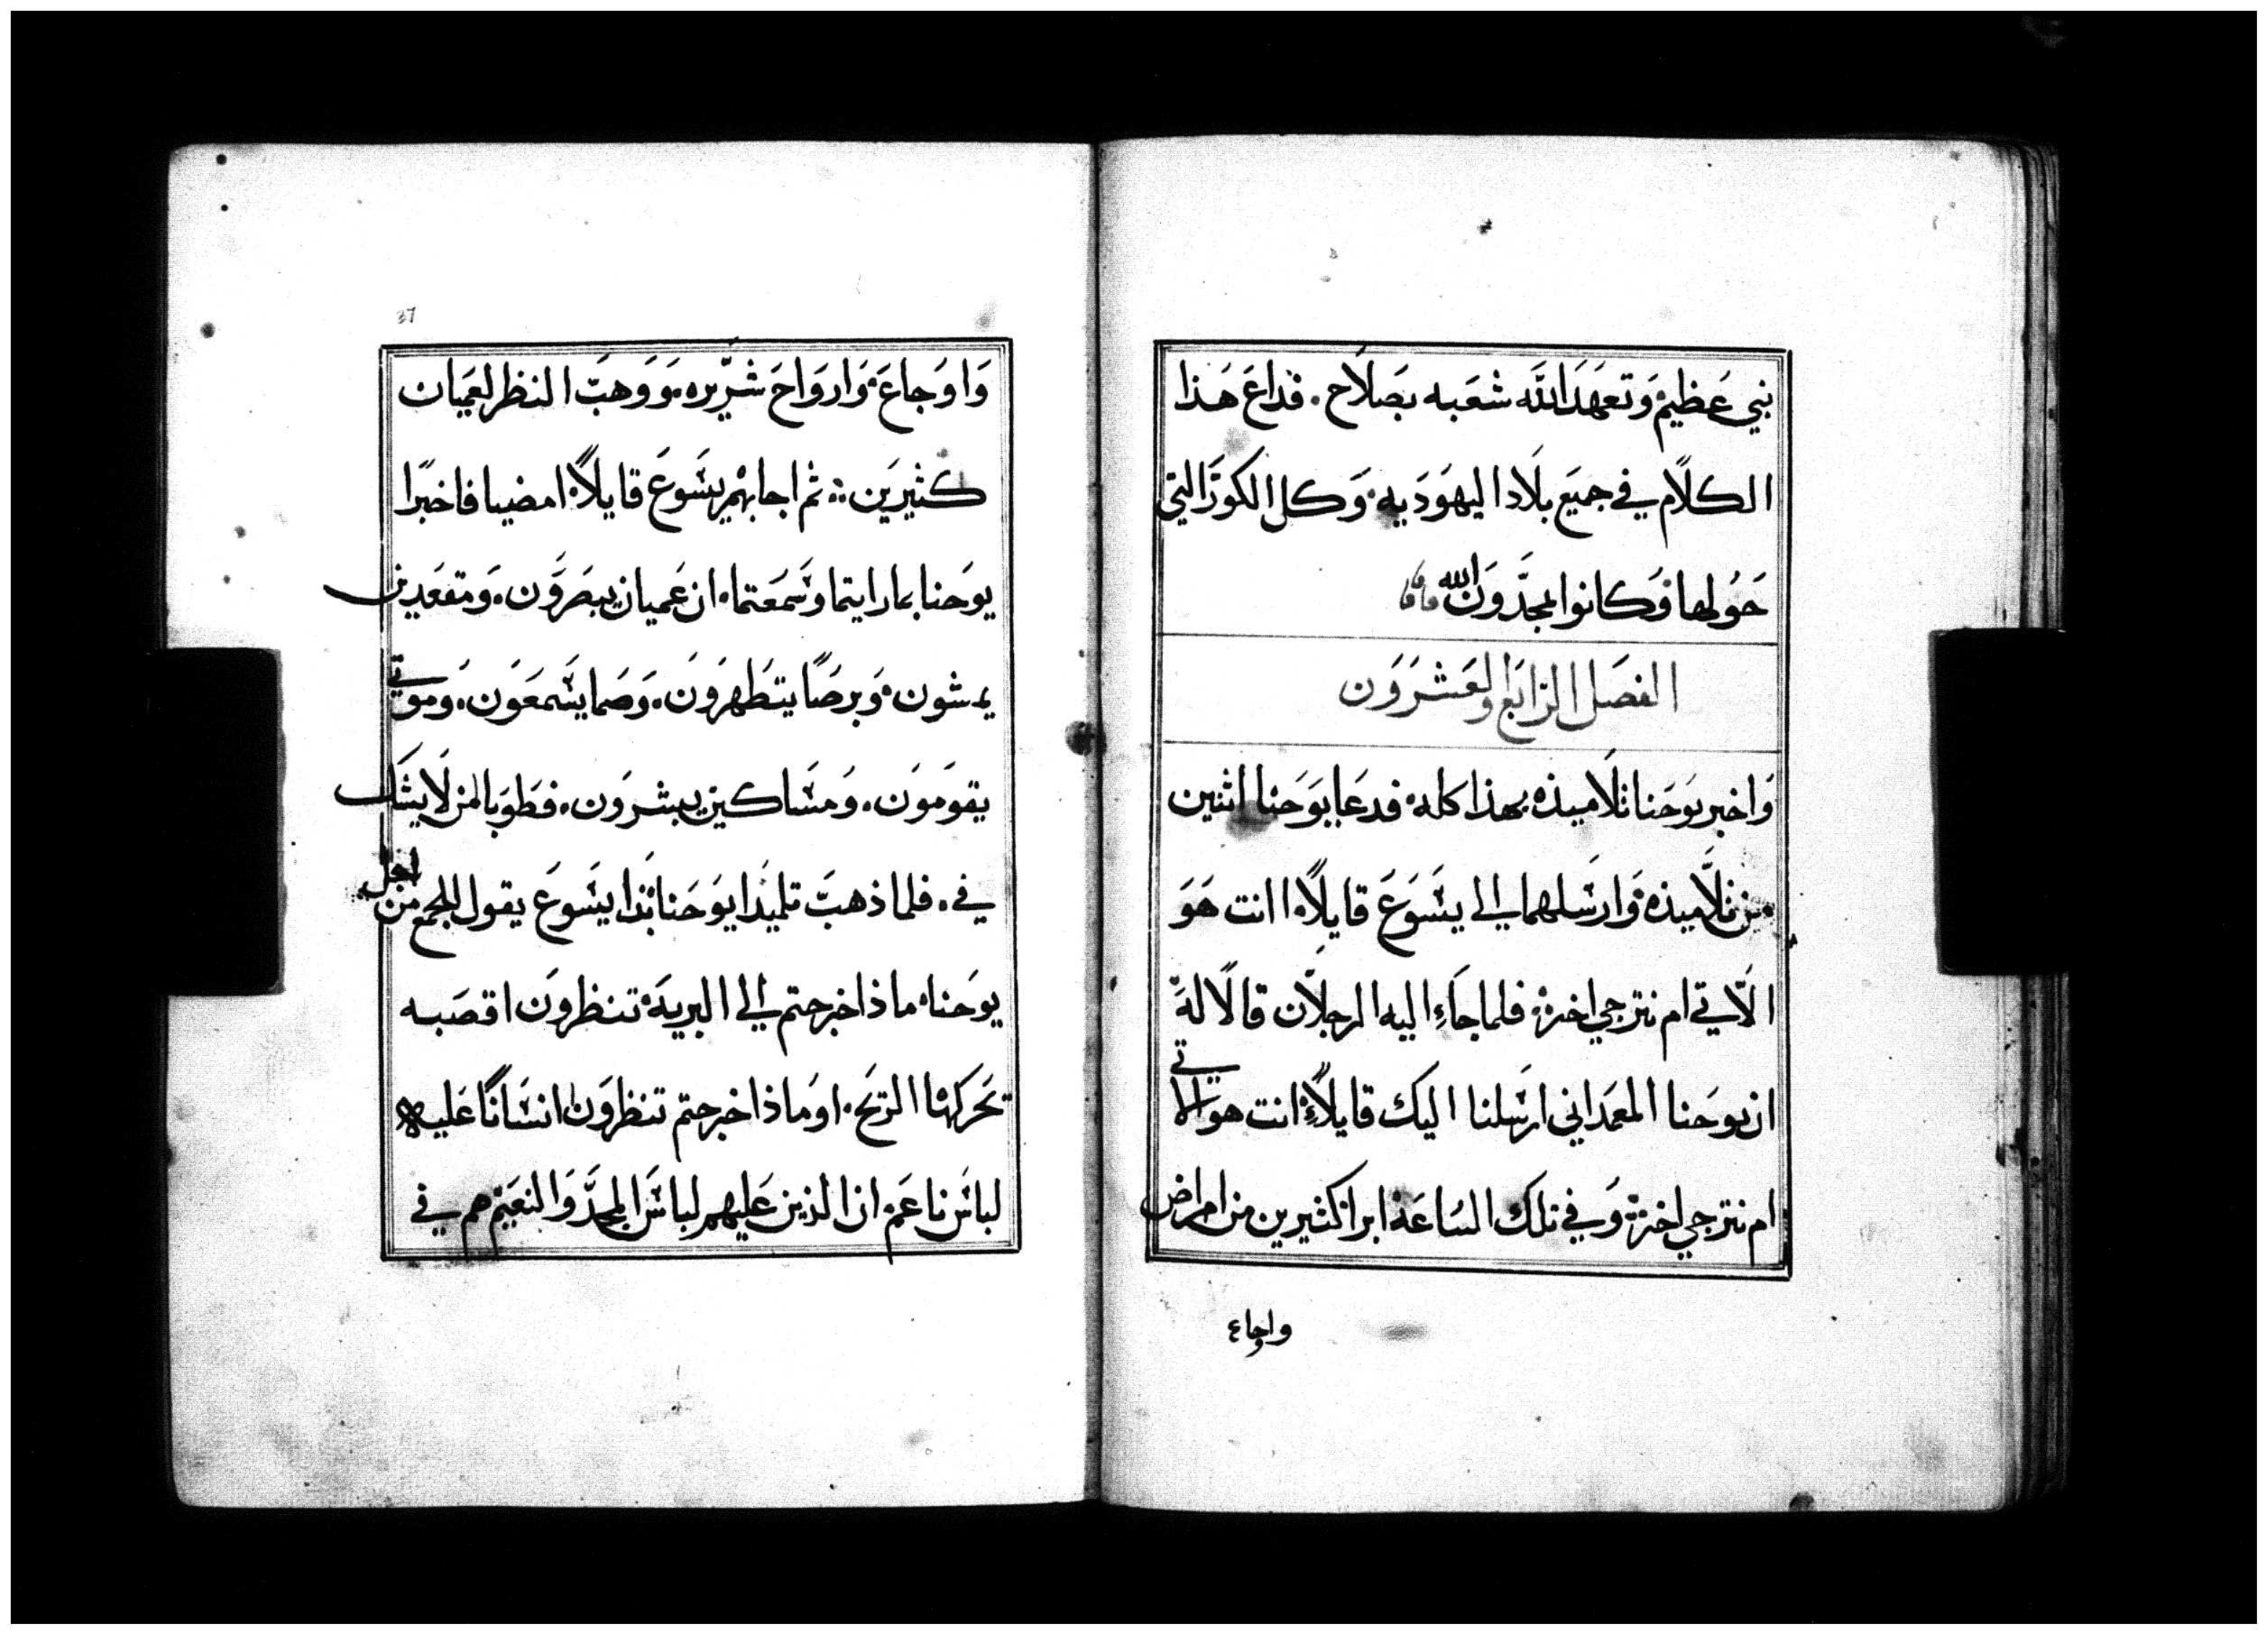 نبي عَظيم وَتعَهَدَ اللَّه شعَبه بصَلاَح. فداعَ هَذا
الكلاَم في جميَع بلاَد اليهوَديه وَكل الكورَ التي
حَولها فوَكانوا يمجدَّوَن الله
الفصَل الرَابَع والعَشرَوَن
وَاخبر يوَحَنا تلاَميذه بهذا كله فدعَا يوَحَنا اثنين
من تلاَّميذه وَارسَلهما الي يسَوَعَ قايلاً انت هوَ
الآتي ام نترجي اخر. فلما جَاءِ اليه الرجلاَن قالاَ لهَ
ان يوحَنا المعمَداني ارسَلنا اليك قايلاً انت هو الاتي
ام نترجي اخر وَفي تلك السَاعَة ابرا كثيرين من امراض
واوجاع
37
وَاوَجاعَ وَاروَاحَ شرَّيره. وَوَهبَ النظر لعَميان
كثيرَين ؞ ثم اجابهم يسَوعَ قايلاً امضيا فاخبرَا
يوحَنا بما رايتما وسَمعَتما ان عَميان يبصَروَن. وَمقعَدين
يمشون وَبرصًا يتطَهرَونَ. وَصَما يسَمعَوَن. وَموتي
يقومَونَ. وَمسَاكين يبشروَن. فطَوَبا لمن لاَ يشَك
في. فلما ذهبَ تلميَدا يوَحَنا بدَا يسَوعَ يقول للجمع من اجل
يوحَنا ماذا خرجتم الي البريةَ تنظروَن اقصَبه
تحَركها الريَح. اومَاذا خرجتم تنظروَن انسَانًا عَليه
لباسَ ناعَم ان الذين عَليهم لباسَ المجدَّ وَالنعَيم هم في